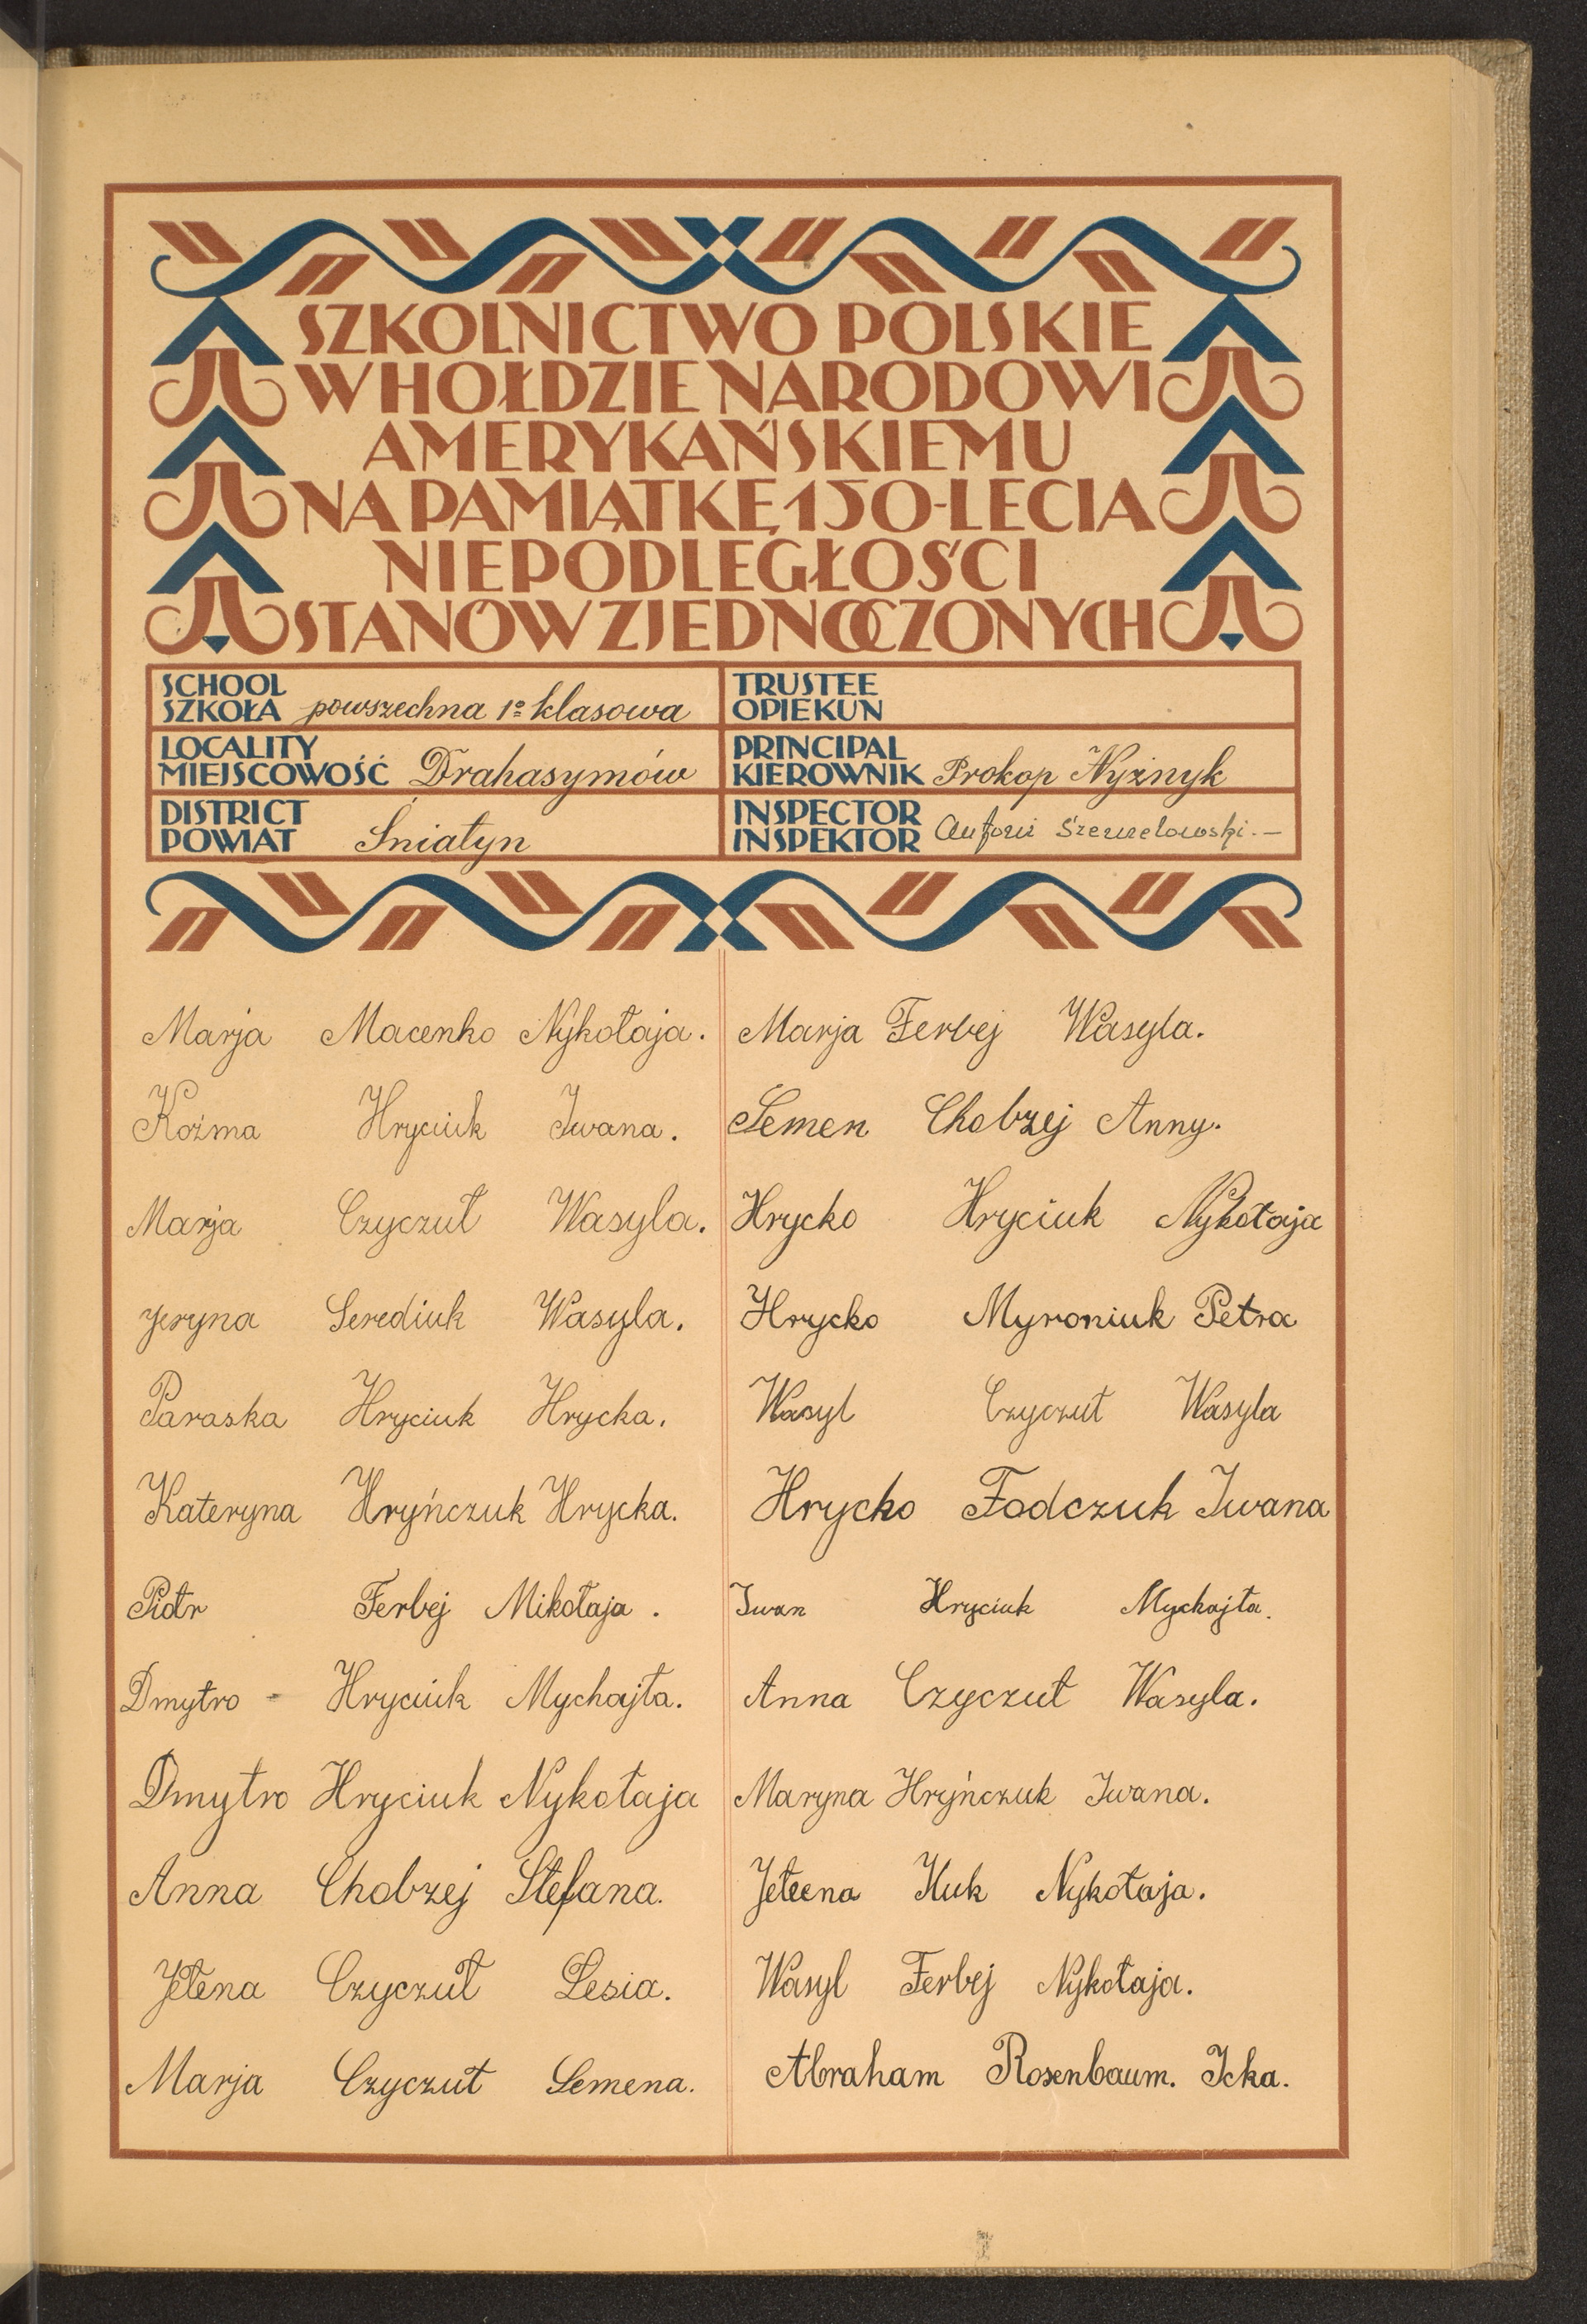 SZKOLNICTWO POLSKIE
W HOŁDZIE NARODOWI
AMERYKAŃSKIEMU
NA PAMIĄTKĘ 150-LECIA
NIEPODLEGŁOŚCI
STANÓW ZJEDNOCZONYCH
SCHOOL
SZKOŁA powszechna 1º klasowa
TRUSTEE
OPIEKUN
LOCALITY
MIEJSCOWOŚĆ Drahasymów
PRINCIPAL
KIEROWNIK Prokop Nyżnyk
DISTRICT
POWIAT Śniatyn
INSPECTOR
INSPEKTOR Antoni
Marja Macenko Nykołaja.
Koźma Hryciuk Iwana.
Marja Czyczuł Wasyla.
Jeryna Serediuk Wasyla.
Paraska Hryciuk Hrycka.
Kateryna Hryńczuk Hrycka.
Piotr Ferbej Mikołaja.
Dmytro - Hryciuk Mychajła.
Dmytro Hryciuk Nykołaja
Anna Chobzej Stefana.
Jełena Czyczuł Lesia.
Marja Czyczuł Semena.
Marja Ferbej Wasyla.
Semen Chobzej Anny.
Hrycko Hryciuk Nykołaja
Hrycko Myroniuk Petra
Wasyl Czyczuł Wasyla
Hrycko Fodczuk Iwana
Iwan Hryciuk Mychajła.
Anna Czyczuł Wasyla.
Maryna Hryńczuk Iwana.
Huk Nykołaja.
Wasyl Ferbej Nykołaja.
Abraham Rosenbaum. Icka.